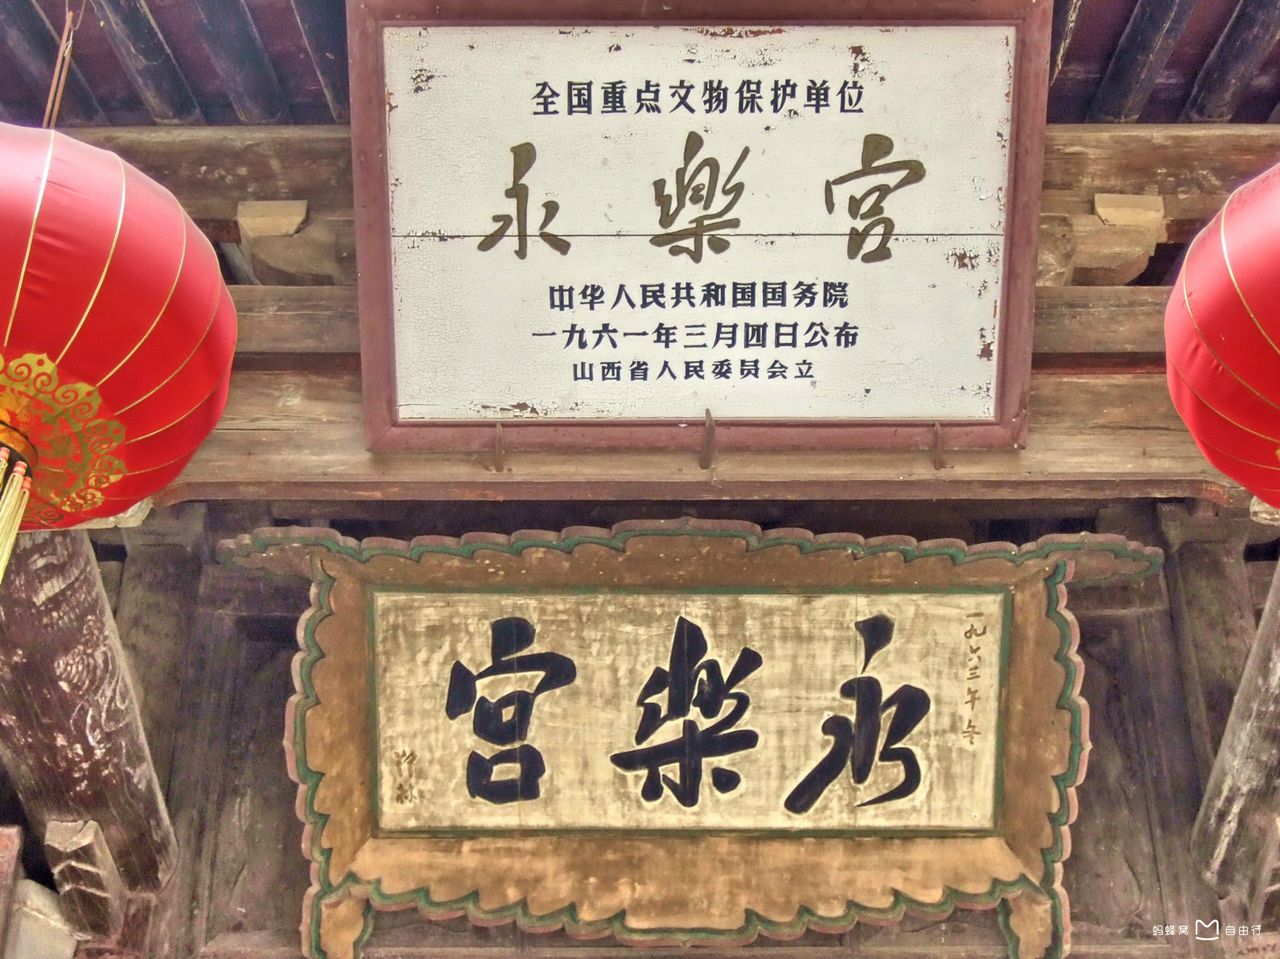 全国重点文物保护单位
永樂宫
中华人民共和国国务院
一九六一年三月四日公布
山西省人民委员会立
一九六三年冬
永樂宫
蚂蜂窝 自由行